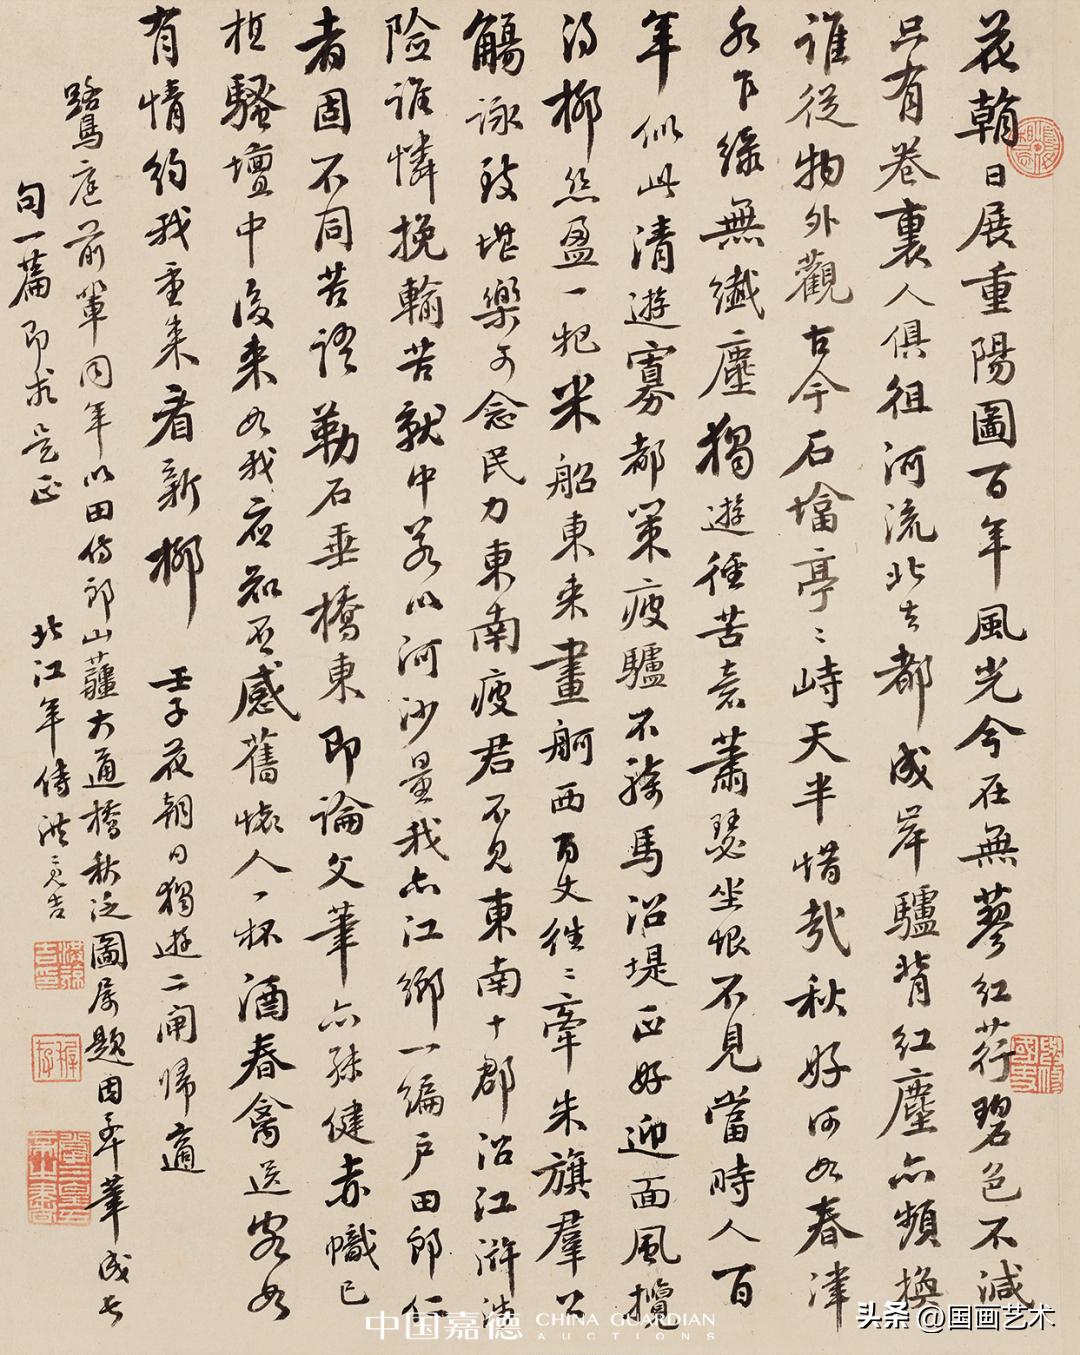 花朝日展重陽圖百年風光今在無蓼紅荇碧色不減
只有卷裏人俱徂河流北去都成岸驢背紅塵亦頻換
誰從物外觀古今石墖亭〻峙天半惜哉秋好何如春津
水乍綠無纖塵獨遊徑苦意蕭瑟坐恨不見當時人百
年似此清遊寡都策疲驢不騎馬沿堤正好迎面風攬
得柳絲盈一把米船東來畫舸西百丈維〻牽朱旗羣公
觴詠致堪樂可念民力東南疲君不見東南十郡沿江滸
險誰憐挽輸苦就中若以河沙量我亦江鄉一編戶田郎仁
者固不同苦語勒石垂橋東即論父筆亦殊健赤幟已
植騷壇中後來如我應知否感舊懷人一杯酒春禽送客如
有情約我重來看新柳 壬子花朝日獨遊二閘歸適
鷺庭前輩同年以田侍郎山薑大通橋秋泛圖屬題因率筆成長
句一篇即求是正 北江年侍洪亮吉
中国嘉德 CHINA GUARDIAN
AUCTIONS
头条 @国画艺术